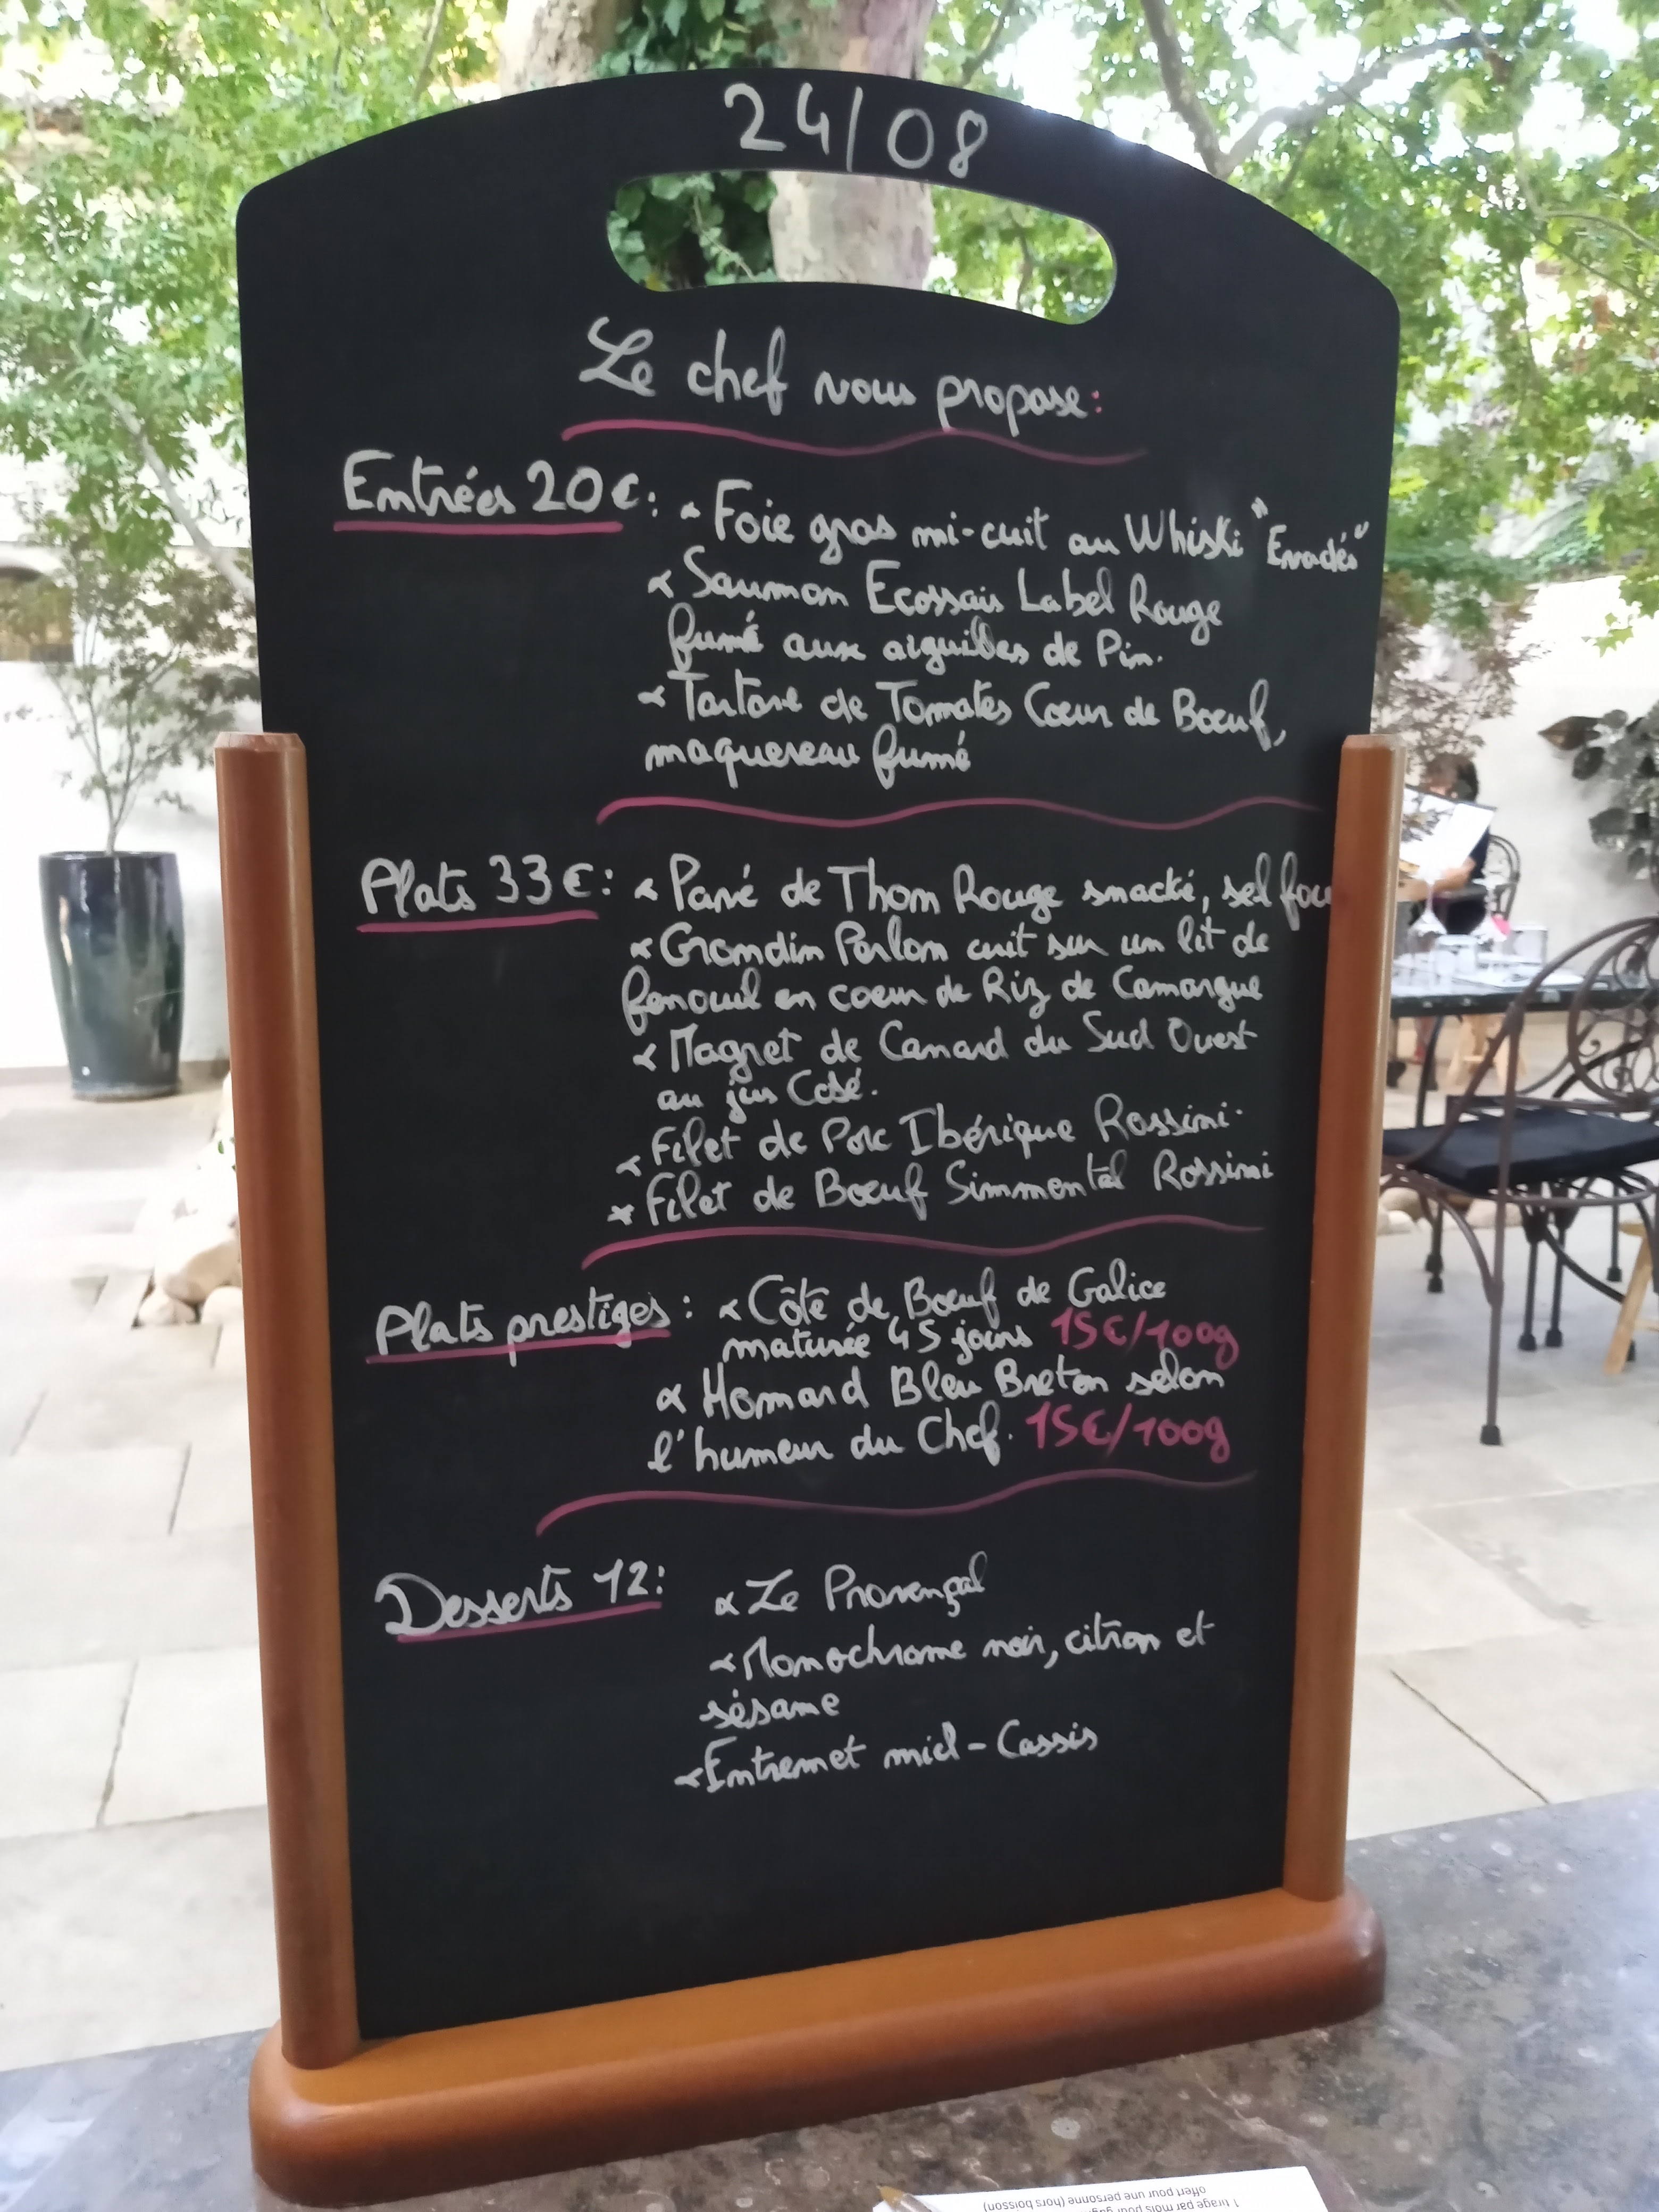 24/08
Le chef vous propose:
Entrées 20€: Foie gras mi-cuit au Whiski "Evadés"
Saumon Ecossais Label Rouge
fumé aux aiguilles de Pin.
Tartare de Tomates Cœur de Bœuf,
maquereau fumé
Plats 33€: Pavé de Thon Rouge snacké, sel fou
Grondin Perlon cuit sur un lit de
fenouil en coeur de Riz de Camargue
Magret de Canard du Sud Ouest
au jus
Filet de Porc Ibérique Rossini.
Filet de Bœuf Simmental Rossini
Plats prestiges: Côte de Bœuf de Galice
maturée 45 jours 15€/100g
Homard Bleu Breton selon
l'humeur du Chef. 15€/100g
Desserts 12: Le Provençal
Monochrome noir, citron et
sésame
Entremet miel-Cassis
1 tirage par mois pour
offert pour une personne (hors boisson)